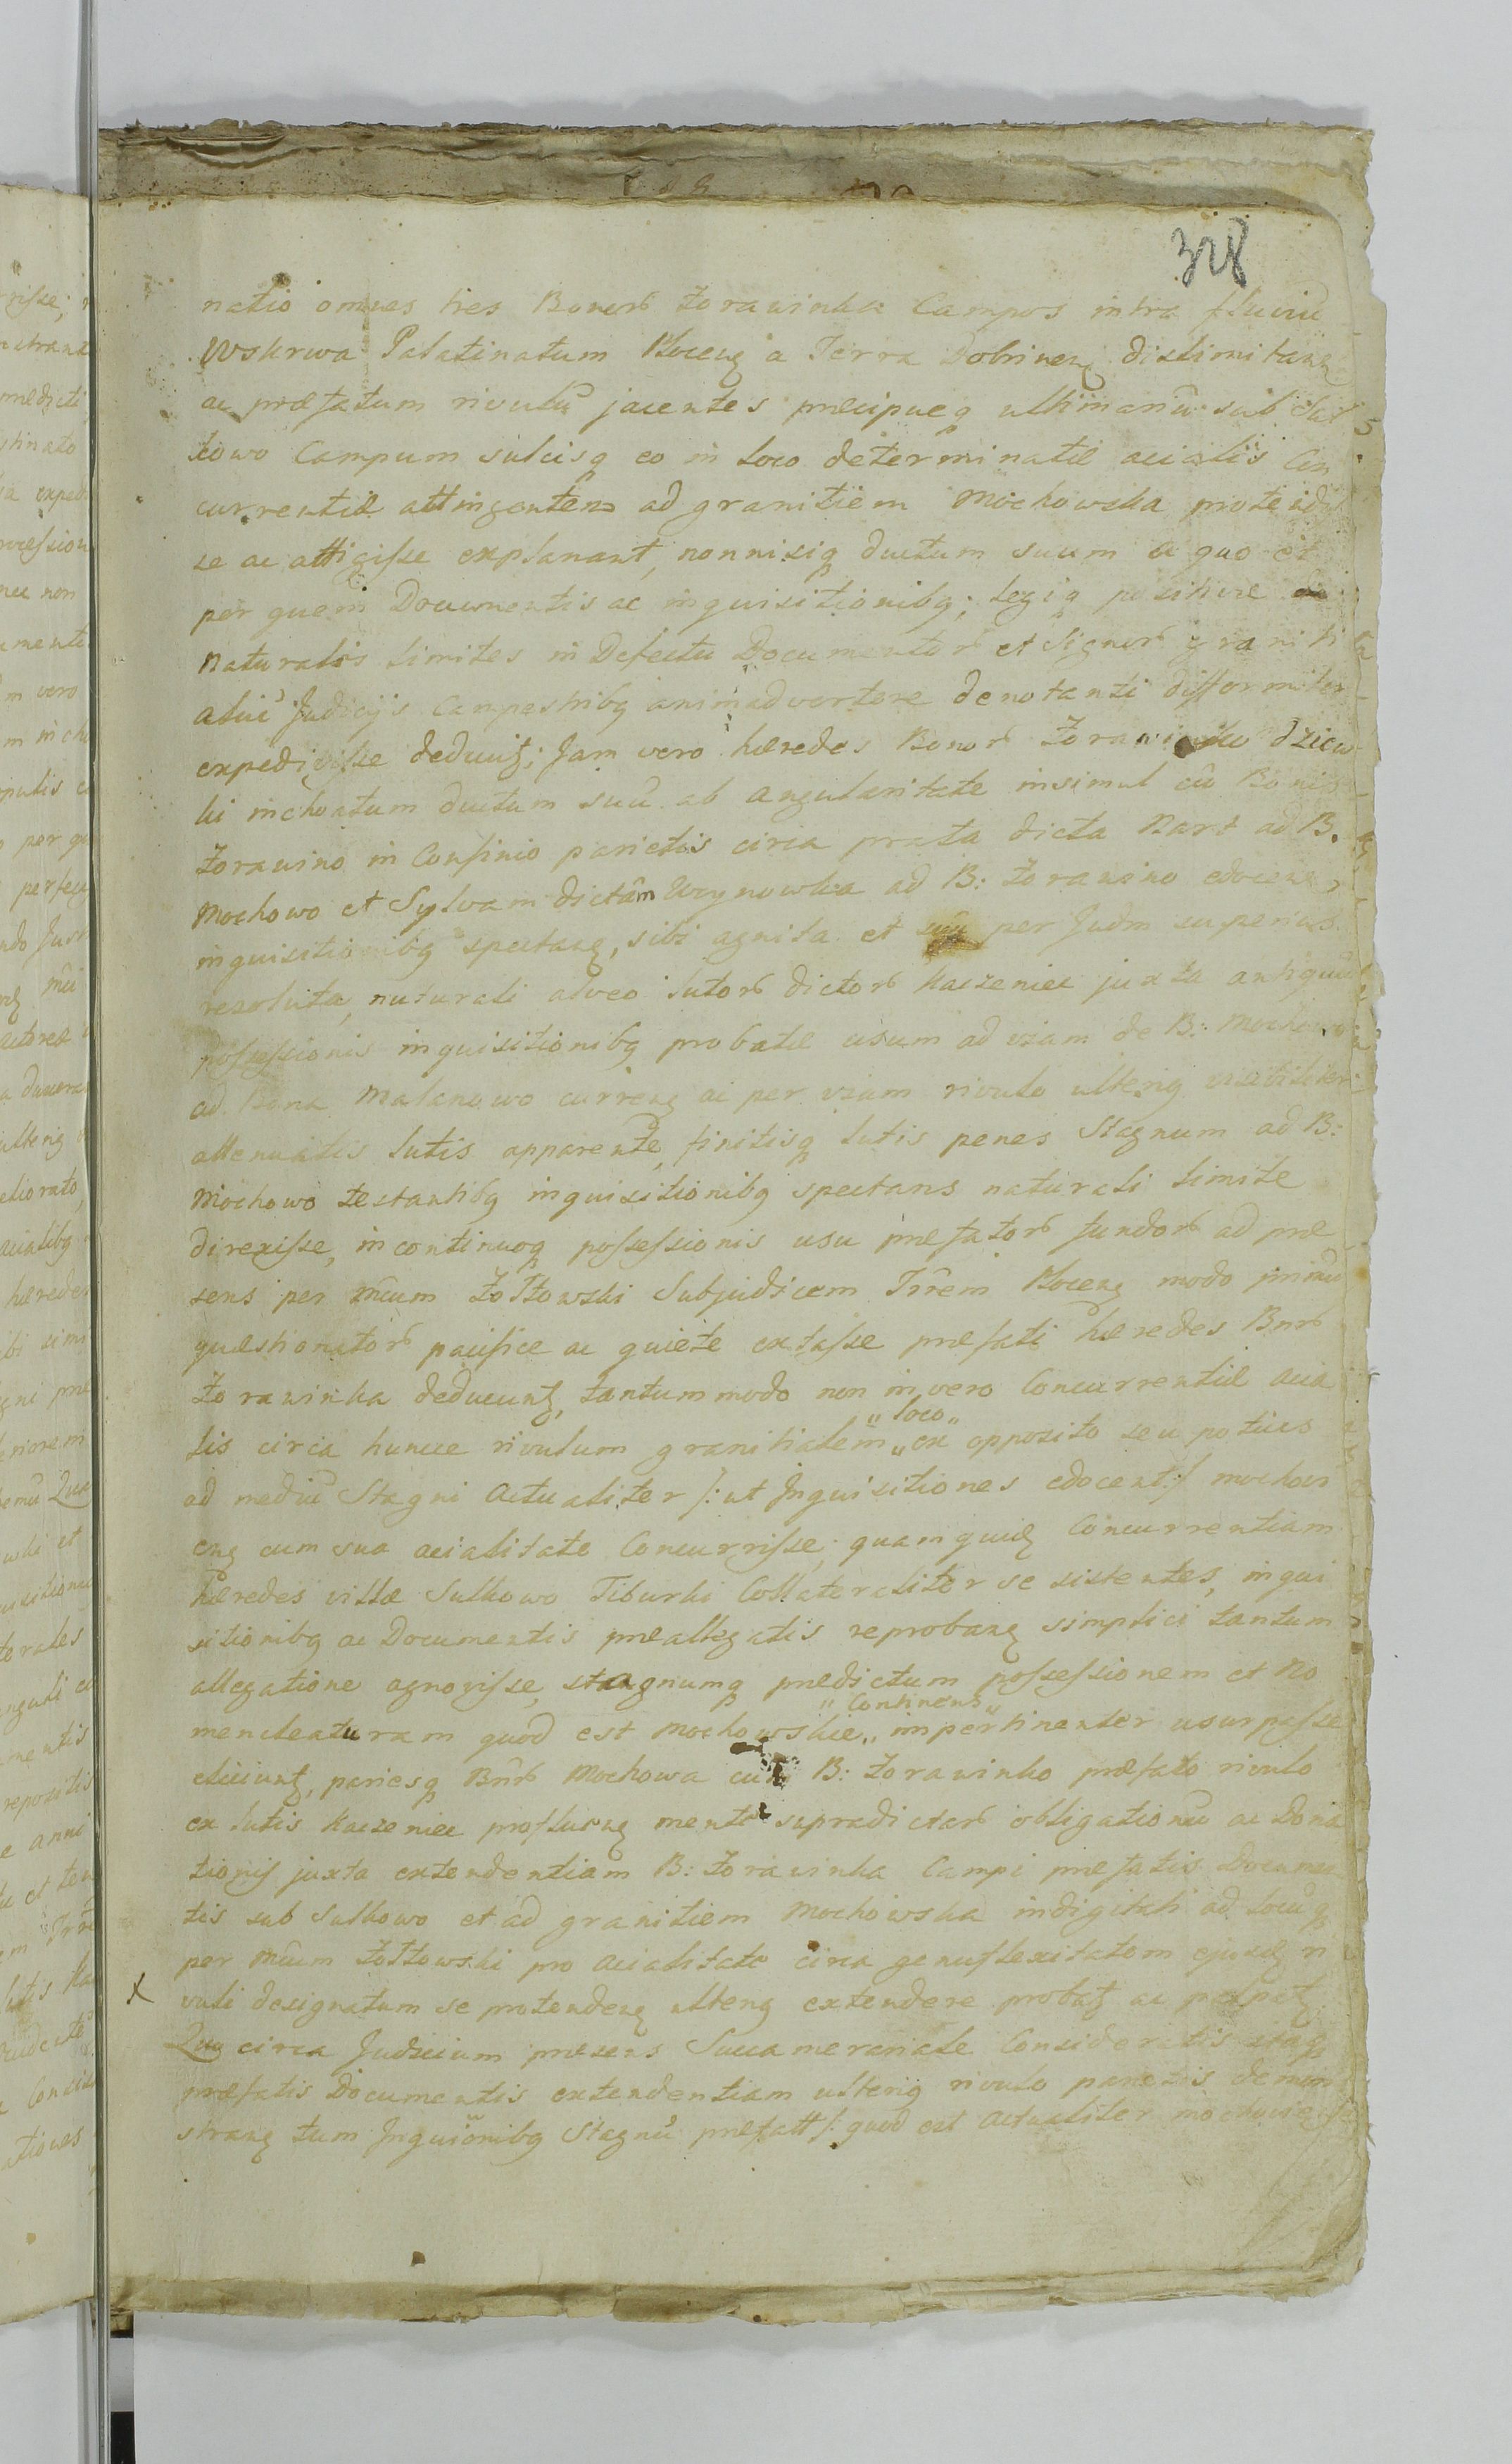 328
natio omnes tres Bonorũ Zorawinka Campos intra fluviũ
Wskrwa Palatinatum Plocenȝ a Terra Dobrinenȝ dislimitanȝ
ac præfatum rivulũ jacentes præcipueq ultimariũ sub Sul
kowo Campum sulcisq eo in loco determinatæ acialis Con
currentiæ attingentem ad granitiem Mochowska protendis
se ac attigiſse explanant, nonnisiq ductum suum a quo et
per quem Documentis ac inquisitionibq; legiq positivæ
naturales limites in Defectu Documentorũ et Signorũ graniti
aliũ Judicijs Campestribq animadvertere denotanti difformiter
expediviſse deducũt; Jam vero hæredes Bonorũ Zorawinko dziew
ki inchoatum ductum suũ ab angularitate insimul cũ Bonis
Zorawino in Confinio parietis circa prata dicta Bart ad B.
Mochowo et Sylvam dictam Woynowka ad B: Zorawino edocenȝ
inquisitionibq spectanȝ, sibi agnita et per Judm superius
resoluta, naturali alveo lutorũ dictorũ Kaczeniec juxta antiquũ
poſseſsionis inquisitionibq probatæ usum ad viam de B: Mochowo
ad Bona Malanowo currenȝ ac per viam rivulo ulteriq visibiliter
attenuatis lutis apparente, finitisq lutis penes Stagnum ad B:
Mochowo testantibq inquisitionibq spectans naturali limite
direxiſse, in continuoq poſseſsionis usu præfatorũ fundorũ ad præ
sens per Mcum Żółtowski Subjudicem Trrem Plocenȝ modo primũ
quæstionatorũ pacifice ac quiete extaſse præfati hæredes Bnrũ
Zorawinka deducunt, tantummodo non in vero Concurrentiæ acia
lis circa huncce rivulum granitialem „loco„ ex opposito seu potius
ad mediũ Stagni actualiter /: ut Inquisitiones edocent :/ mochovi
enȝ cum sua acialitate Concurriſse; quamquiđ Concurrentiam
hæredes villæ Sulkowo Tiburki Collateraliter se sistentes, inqui
sitionibq ac Documentis præallegatis reprobanȝ simplici tantum
allegatione agnoviſse, stagnumq prædictum poſseſsionem et No
mencleaturam quod est Mochowskie „Continens„ impertinenter usurpaſse
eliciunt, pariesq Bnrũ Mochowa cum B: Zorawinko præfato rivulo
ex lutis Kaczeniec profluenȝ mente supradictarũ obligationũ ac Dona
tionis juxta extendentiam B: Zorawinka Campi præfatis Documen
tis sub Sulkowo et ad granitiem Mochowska indigitati ad locũq
per Mcum Żółtowski pro acialitate circa genuflexitatem ejusđ ri
x vuli designatum se protendenȝ ulteriq extendere probat ac
Quo circa Judicium præsens Succamerariale Consideratis
præfatis Documentis extendentiam ulteriq rivulo parietis demon
stranȝ tum Inquiõnibq Stagnũ præfatt /: quod est actualiter